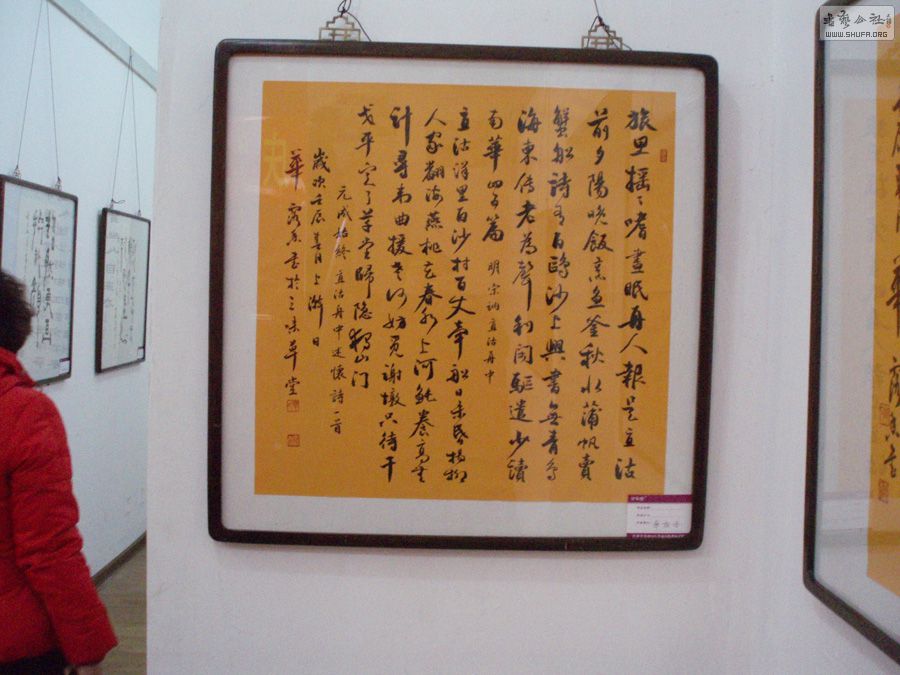 旅思摇〻嗜昼眠舟人报是直沽
前夕阳晚饭烹鱼釜秋水蒲帆卖
蟹船诗有白鸥沙上兴书无青鸟
海东传老为声利闲驱遣少读
南华四五篇 明宗讷直沽舟中
直沽洋里白沙村百丈牵船日未昏杨柳
人家翻海燕桃花春水上河豚养高
计寻韦曲援老何妨觅谢墩只待干
戈平定了草堂归隐狼山门
元成始终直沽舟中述怀诗一首
岁次壬辰 月上澣日
华 书于三味草堂
WWW.SHUFA.ORG